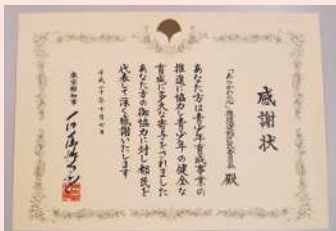 感謝状
「あらかわの心」推進運動区民委員会 殿
あなた方は青少年育成事業の
推進に協力し青少年の健全な
育成に多大な寄与をされました
あなた方の御協力に対し都民を
代表して深く感謝いたします
平成二十年十月七日
東京都知事